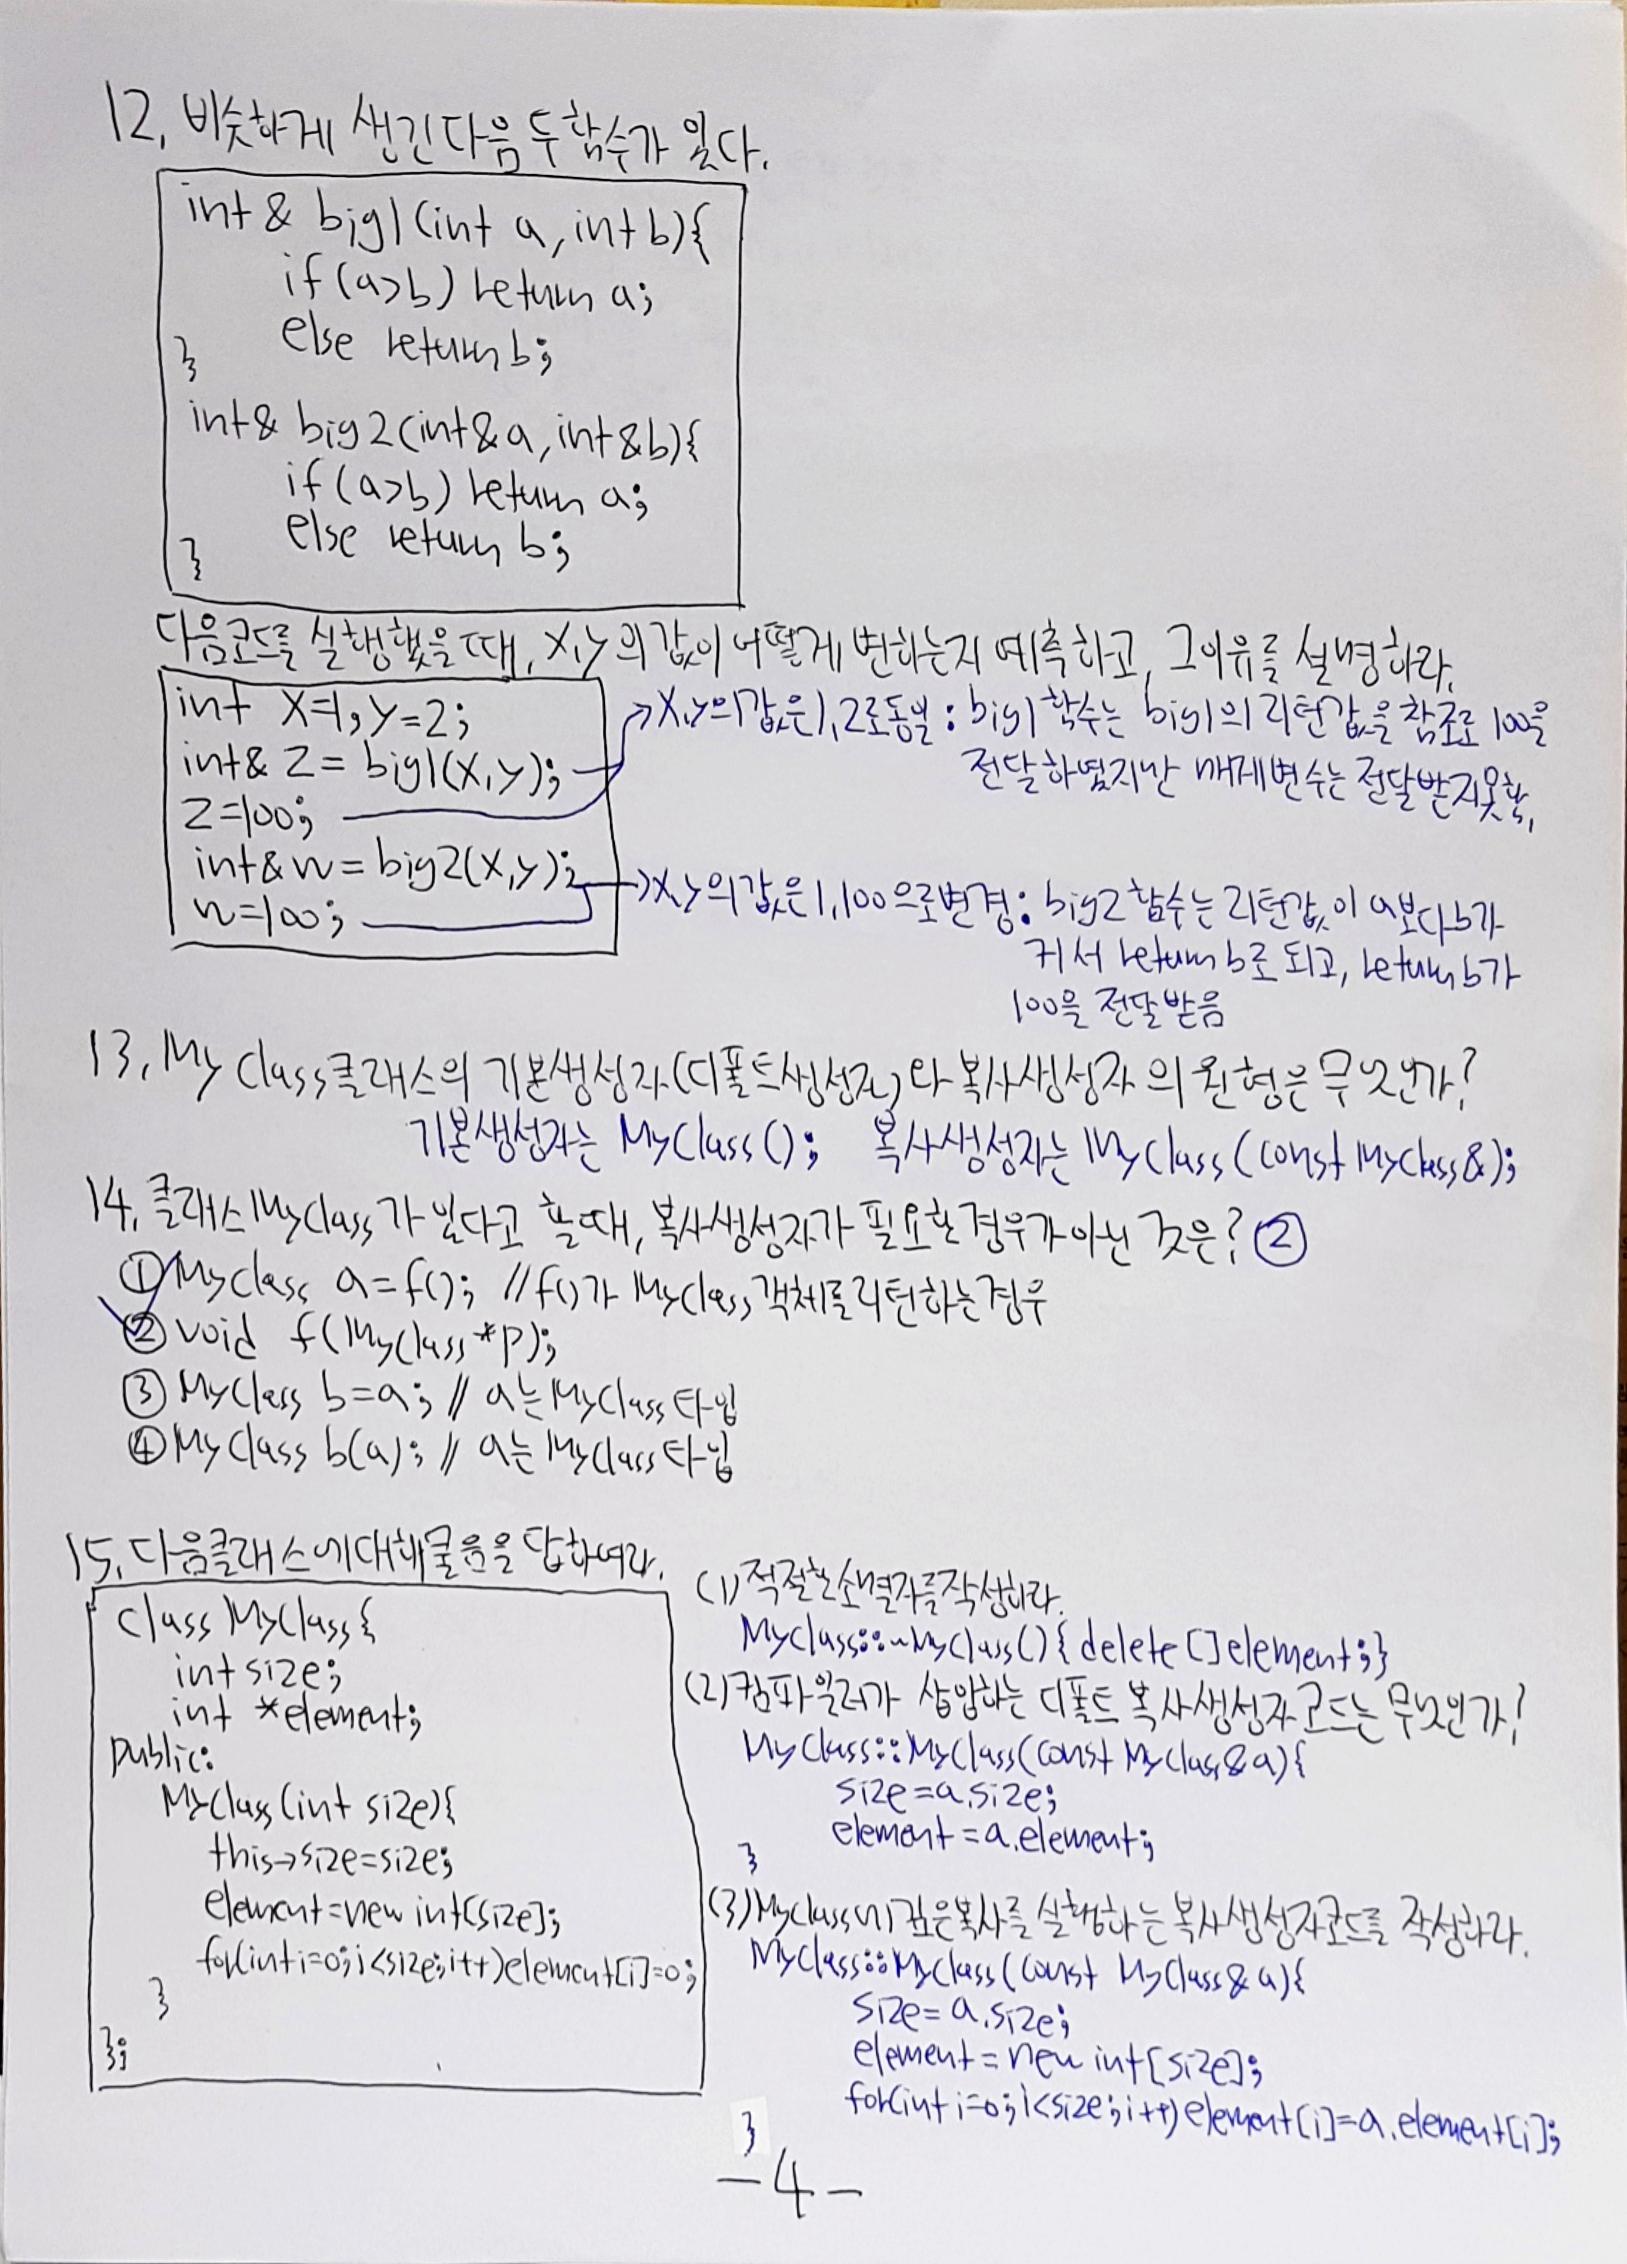 12. 비슷하게 생긴 다음 두 함수가 있다.
int& big1(int a, int b){
if(a>b) return a;
else return b;
}
int& big2(int&a, int&b){
if(a>b) return a;
else return b;
}
다음코드를 실행했을 때, x,y의 값이 어떻게 변하는지 예측하고, 그이유를 설명하라.
int x=1, y=2;
int& z = big1(x,y);
z=100;
int& w = big2(x,y);
w=100;
→x,y의 값은 1,2로 동일 : big1함수는 big1의 리턴값을 참조로 100을
전달하였지만 매개변수는 전달받지못함.
→x,y의 값은 1,100으로변경: big2 함수는 리턴값이 a보다 b가
커서 return b로 되고, return b가
100을 전달받음
13. MyClass클래스의 기본생성자(디폴트생성자)와 복사생성자의 원형은 무엇인가?
기본생성자는 MyClass(); 복사생성자는 MyClass(const MyClass&);
14. 클래스 MyClass가 있다고 할 때, 복사생성자가 필요한 경우가 아닌 것은? ②
① MyClass a=f(); //f()가 MyClass객체를 리턴하는경우
② void f(MyClass*p);
③ MyClass b=a; // a는 MyClass 타입
④ MyClass b(a); // a는 MyClass 타입
15. 다음클래스에대해물음을 답하여라.
class MyClass{
int size;
int *element;
public:
MyClass(int size){
this→size=size;
element=new int[size];
for(int i=0;i<size;i++)element[i]=0;
}
};
(1)적절한소멸자를작성하라.
MyClass::~MyClass(){delete[]element;}
(2)컴파일러가 삽입하는 디폴트 복사생성자코드는 무엇인가?
MyClass::MyClass(const MyClass&a){
size=a.size;
element=a.element;
}
(3)MyClass에 깊은복사를 실행하는 복사생성자코드를 작성하라.
MyClass::MyClass(const MyClass&a){
size=a.size;
element=new int[size];
for(int i=0;i<size;i++)element[i]=a.element[i];
}
-4-